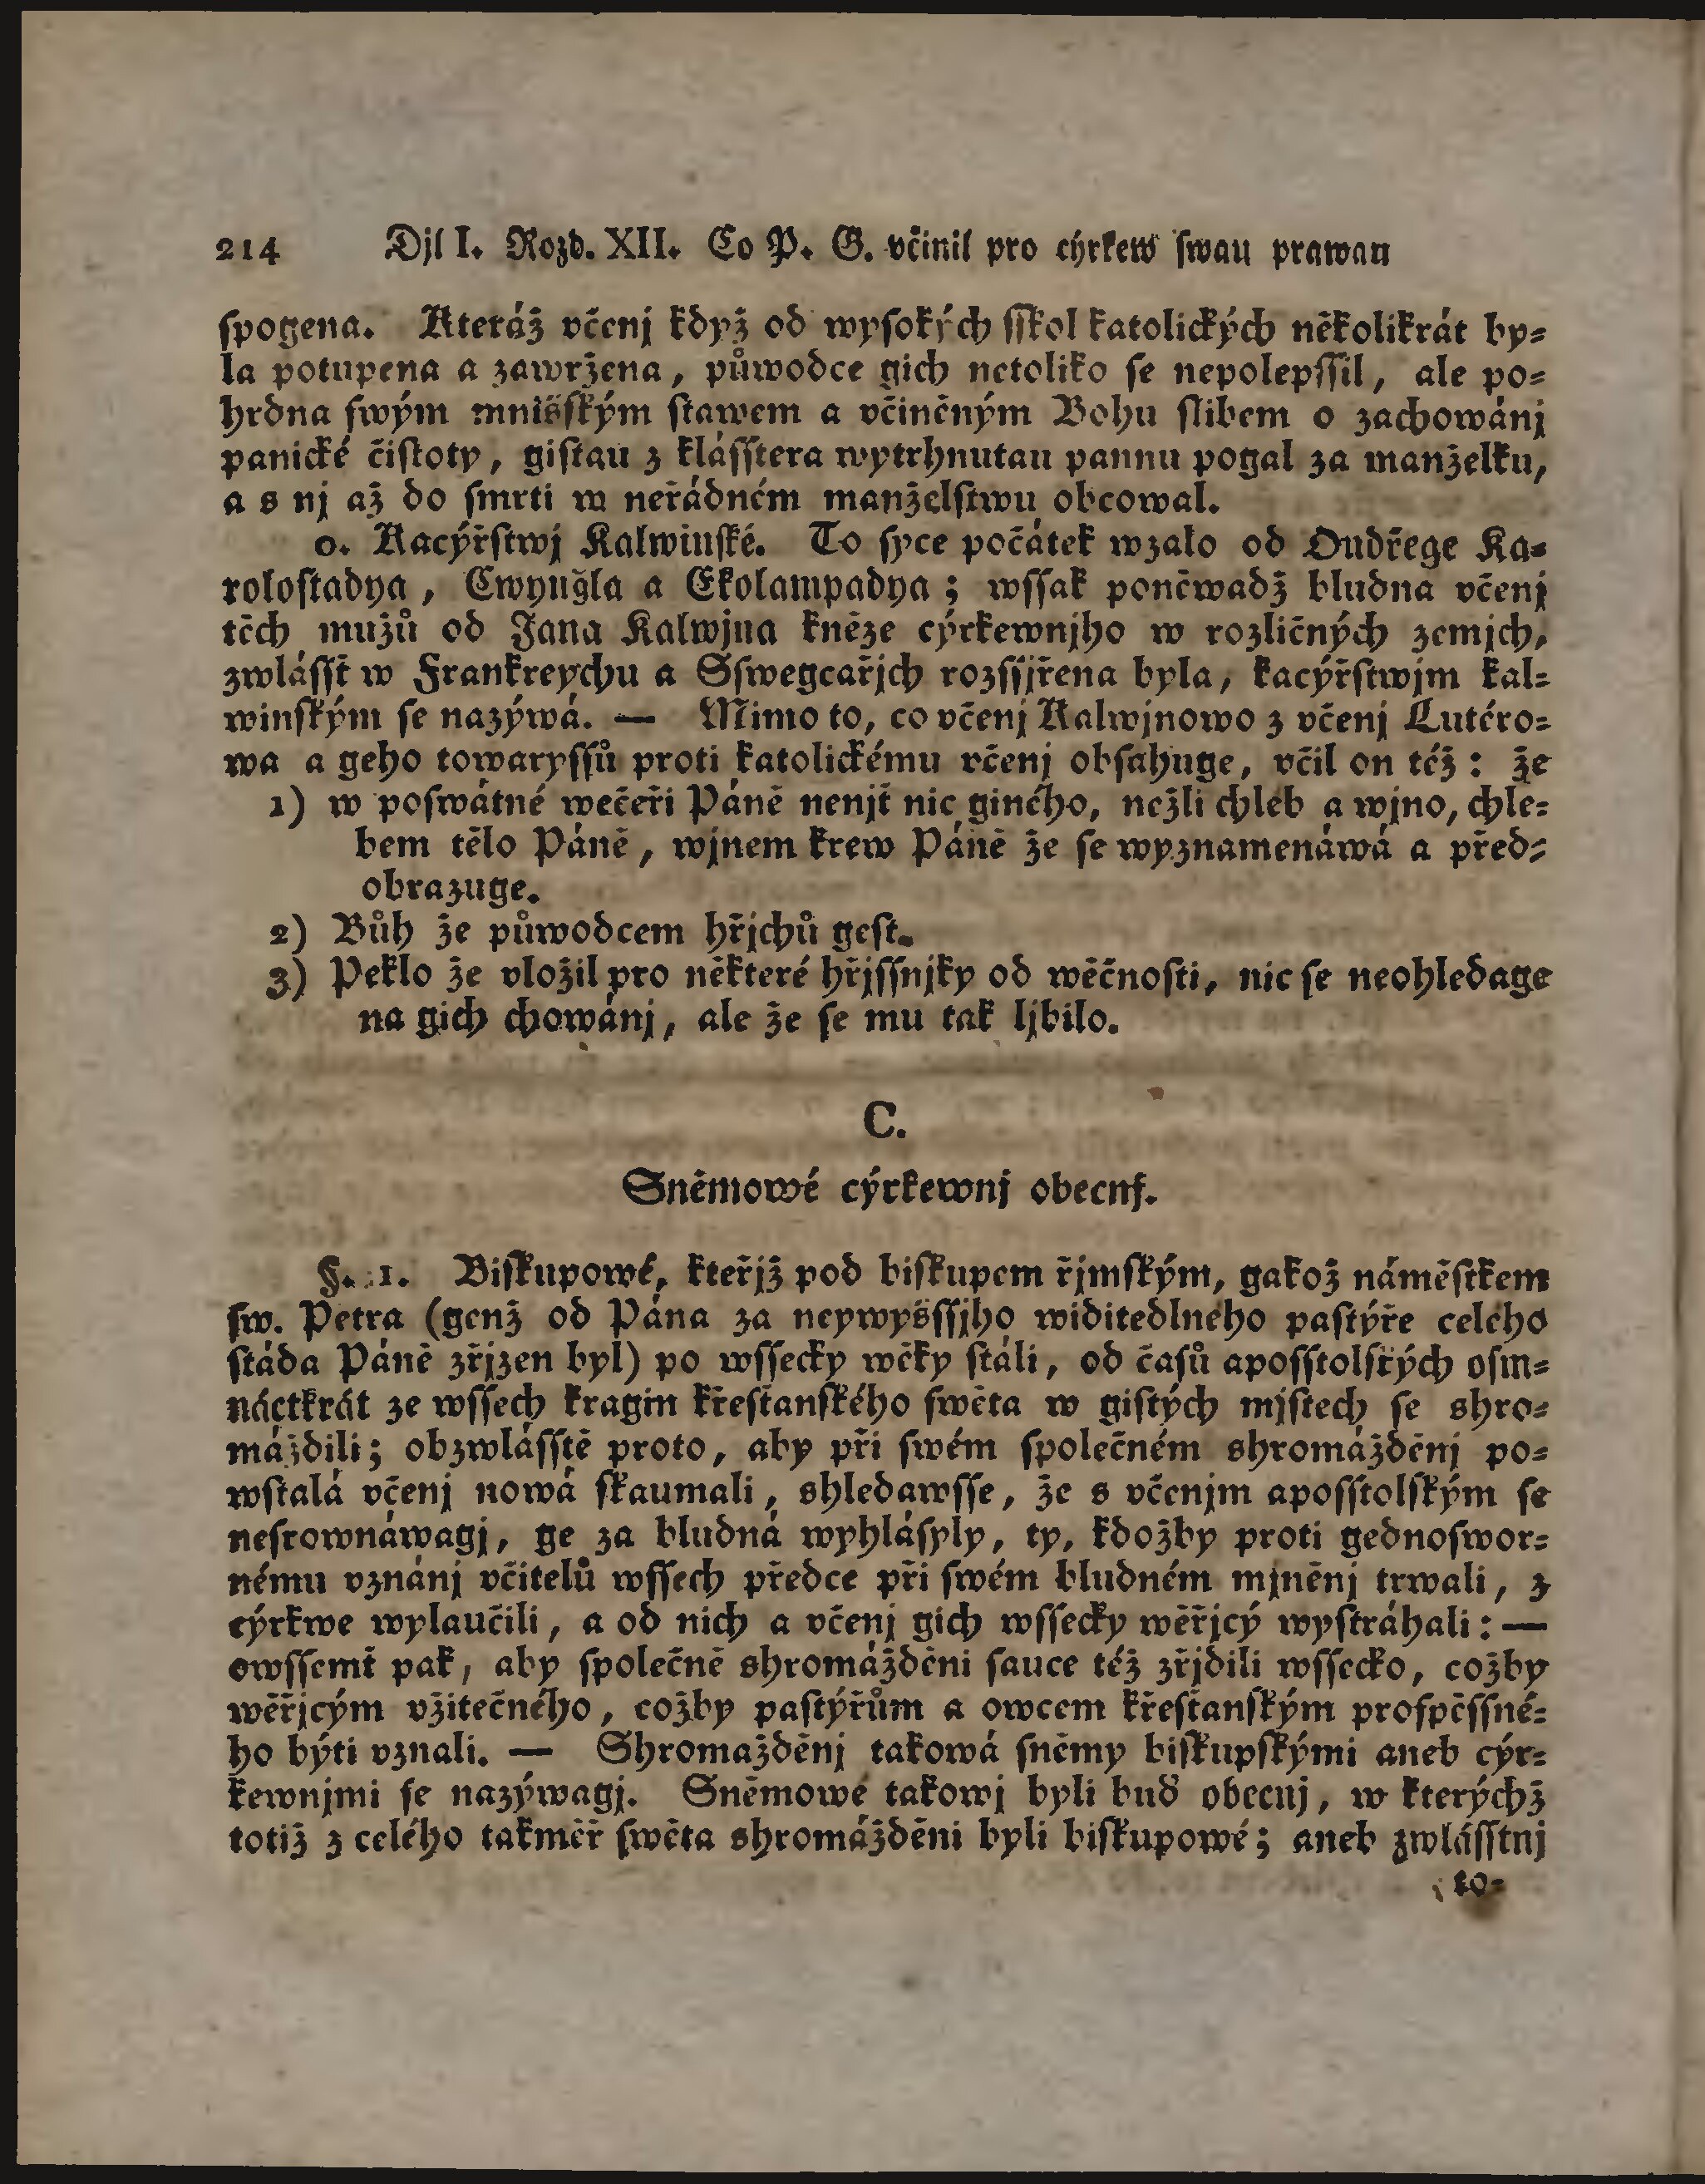 214 Djl I. Rozd. XII. Co P. G. včinil pro cýrkew ſwau prawau
ſpogena. Kteráž včenj když od wyſokých ſſkol katolických někoľikrát by⸗
la potupena a zawržena, půwodce gich netoliko ſe nepolepſſil, ale po⸗
hrdna ſwým mniſſkým ſtawem a včiněným Bohu ſlibem o zachowánj
panické čiſtoty, giſtau z kláſſtera wytrhnutau pannu pogal za manželku,
a s nj až do ſmrti w neřádném manželſtwu obcowal.
o. Kacýřſtwj Kalwinſké. To ſyce počátek wzalo od Ondřege Ka⸗
roloſtadya, Cwynğla a Ekolampadya; wſſak poněwadž bludna včenj
těch mužů od Jana Kalwjna kněze cýrkewnjho w rozličných zemjch,
zwláſſť w Frankreychu a Sſwegcařjch rozſſjřena byla, kacýřſtwjm kal⸗
winſkým ſe nazýwá. — Mimo to, co včenj Kalwjnowo z včenj Lutéro⸗
wa a geho towaryſſů proti katolickému včenj obſahuge, včil on též: že
1) w poſwátné wečeři Páně nenjť nic giného, nežli chléb a wjno, chle⸗
bem tělo Páně, wjnem krew Páně že ſe wyznamenáwá a před⸗
obrazuge.
2) Bůh že půwodcem hřjchů geſt.
3) Peklo že vložil pro některé hřjſſnjky od wěčnoſti, nic ſe neohledage
na gich chowánj, ale že ſe mu tak ljbilo.
C.
Sněmowé cýrkewnj obecnj.
§. 1. Biſkupowé, kteřjž pod biſkupem řjmſkým, gakož náměſtkem
ſw. Petra (genž od Pána za neywyšſſjho widitedlného paſtýře celého
ſtáda Páně zřjzen byl) po wſſecky wěky ſtáli, od čaſů apoſſtolſkých oſm⸗
náctkrát ze wſſech kragin křeſťanſkého ſwěta w giſtých mjſtech ſe shro⸗
máždili; obzwláſſtě proto, aby při ſwém ſpolečném shromážděnj po⸗
wſtalá včenj nowá ſkaumali, shledawſſe, že s včenjm apoſſtolſkým ſe
neſrownáwagj, ge za bludná wyhláſyly, ty, kdožby proti gednoſwor⸗
nému vznánj včitelů wſſech předce při ſwém bludném mjněnj trwali, z
cýrkwe wylaučili, a od nich a včenj gich wſſecky wěřjcý wyſtráhali: —
owſſemť pak, aby ſpolečně shromážděni ſauce též zřjdili wſſecko, cožby
wěřjcým vžitečného, cožby paſtýřům a owcem křeſťanſkým proſpěſſné⸗
ho býti vznali. — Shromažděnj takowá ſněmy biſkupſkými aneb cýr⸗
kewnjmi ſe nazýwagj. Sněmowé takowj byli buď obecnj, w kterýchž
totiž z celého takměř ſwěta shromážděni byli biſkupowé; aneb zwláſſtnj
to⸗